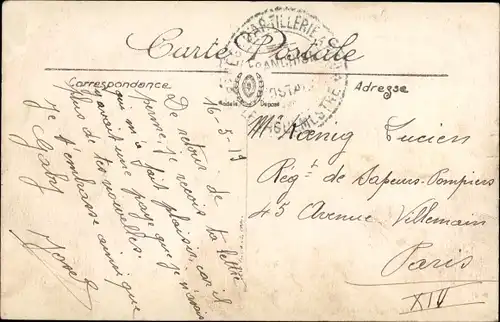 Carte Postale
D'ARTILLERIE
FRANCHISE
POSTALE
Correspondance
Adresse
Modèle Déposé
16-5-19
De retour de
perme, je reçois ta lettre
qui m'a fait plaisir, car il
y avait une paye que je n'avais
plus de tes nouvelles.
Je t'embrasse ainsi que
Gaby
Mr Kœnig Lucien
Regt de Sapeurs-Pompiers
45 Avenue Villemain
Paris
XIV